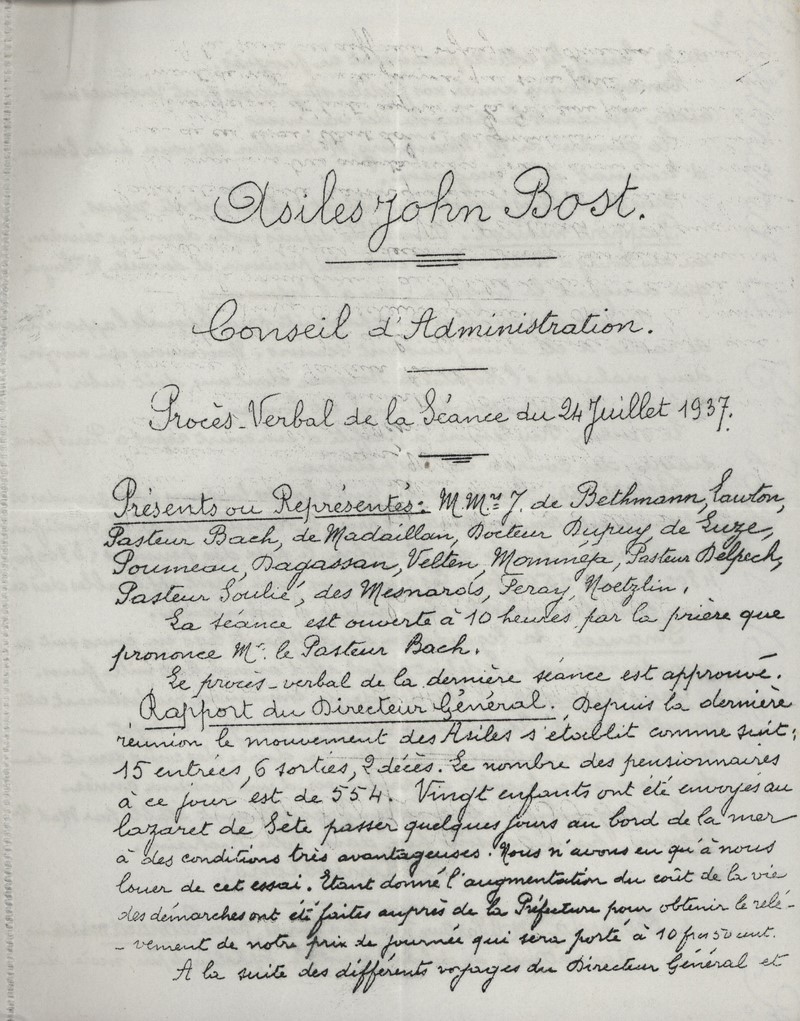 Asiles John Bost.
Conseil d'Administration.
Procès-Verbal de la Séance du 24 Juillet 1937.
Présents ou Représentés: M.Mrs J. de Bethmann, Lawton,
Pasteur Bach, de Madaillan, Docteur Dupuy, de Luze,
Poumeau, Dagassan, Velten, Mommeja, Pasteur Delpech,
Pasteur Soulié, des Mesnards, Feray, Noetzlin.
La séance est ouverte à 10 heures, par la prière que
prononce Mr. le Pasteur Bach.
Le procès-verbal de la dernière séance est approuvé.
Rapport du Directeur Général. Depuis la dernière
réunion le mouvement des Asiles s'établit comme suit:
15 entrées, 6 sorties, 2 décès. Le nombre des pensionnaires
à ce jour est de 554. Vingt enfants ont été envoyés au
lazaret de Sète passer quelques jours au bord de la mer
à des conditions très avantageuses. Nous n'avons eu qu'à nous
louer de cet essai. Etant donné l'augmentation du coût de la vie
des démarches ont été faites auprès de la Préfecture pour obtenir le relè-
-vement de notre prix de journée qui sera porté à 10 frs 50 cent.
A la suite des différents voyages du Directeur Général et